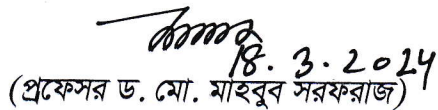 18.3.2024
(প্রফেসর ড. মো. মাহবুব সরফরাজ)